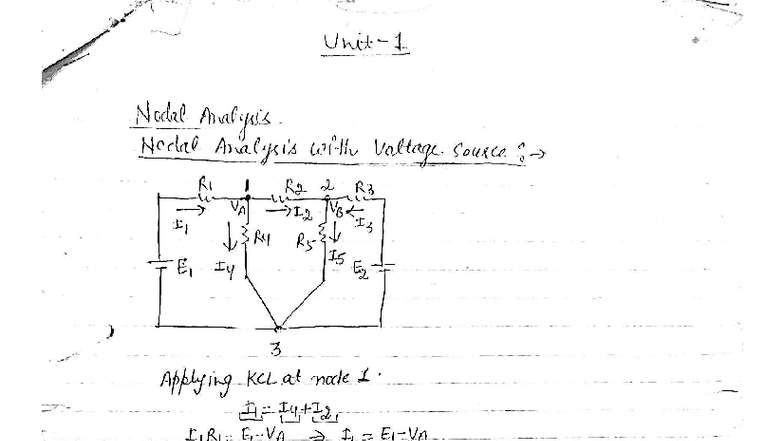 Unit-1
Nodal Analysis.
Nodal Analysis with Voltage source :→
R1 1 R2 2 R3
VA I2 VB I3
I1 R4 R5
E1 I4 I5 E2
3
Applying KCL at node 1.
I1 = I4 + I2
I1R1 = E1 - VA ⇒ I1 = E1 - VA